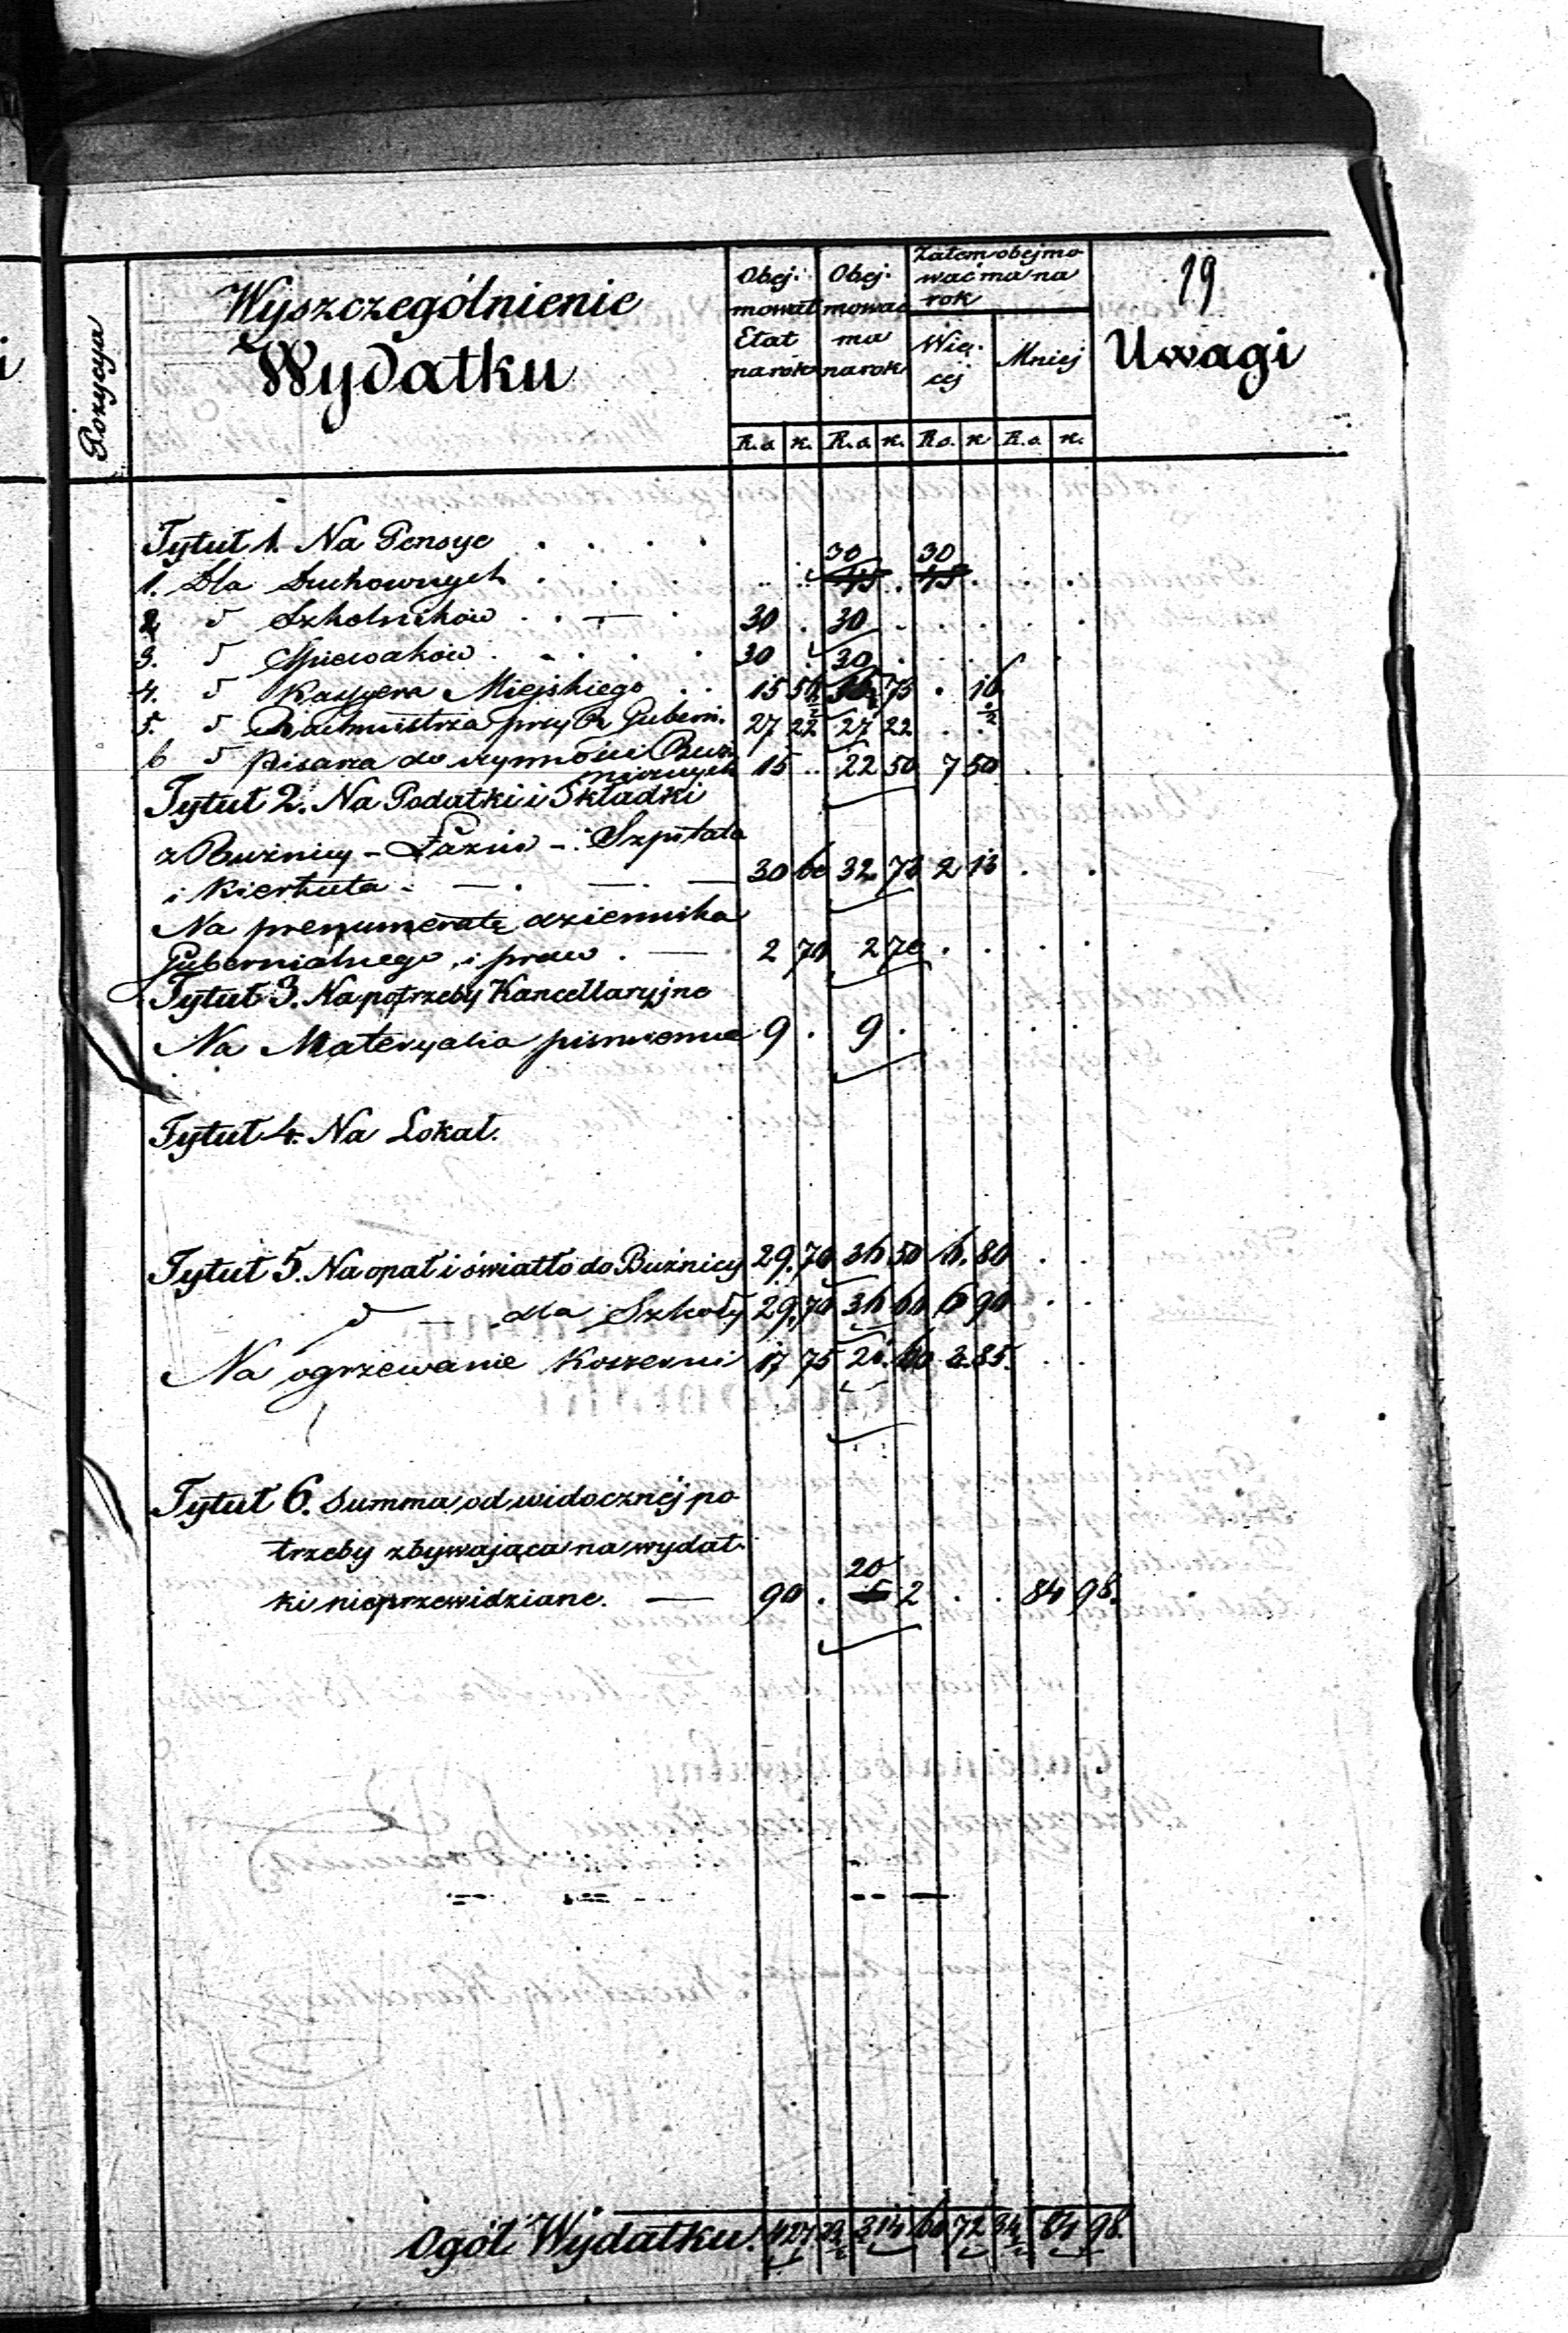 19
Pozycya
Wyszczególnienie
Wydatku
Obej-
mował
Etat
na rok
Obej-
mować
ma
na rok
Zatem obejmo
wać ma na
rok
Wię-
cej
Mniej
Uwagi
R.s. k. R.s. k. R.s. k. R.s. k.
Tytuł 1. Na Pensye . . . .
30 30
1. Dla Duchownych . . . 45 . 45
2 " Szkolników . . — . 30 . 30
3. " Spiewaków . . . . 30 . 30
4. " Kassyera Miejskiego . . 15 73 . 16
5. " przy Rz. Gubern. 27 22 27 22
6 " Pisarza do czynności Buż-
niczych 15 .. 22 50 7 50
Tytuł 2. Na Podatki i Składki
z Bużnicy - Łazni - Szpitala
i Kierkuta . — . — . — 30 60 32 73 2 13
Na prenumeratę dziennika
Gubernialnego i praw . — 2 70 2 70
Tytuł 3. Na potrzeby Kancellaryjne
Na Materyalia pismienne 9 . 9 .
Tytuł 4. Na Lokal.
Tytuł 5. Na opał i światło do Bużnicy 29. 70 36 50 6. 80
" — dla Szkoły 29. 70 36 60 6 90
Na ogrzewanie Koszerni 17 75 60 85.
Tytuł 6. Summa od widocznéj po
trzeby zbywająca na wydat-
20
ki nieprzewidziane. — 90 . 5 2 . . 84 98.
Ogół Wydatku. 314 60 72 34 84 98.